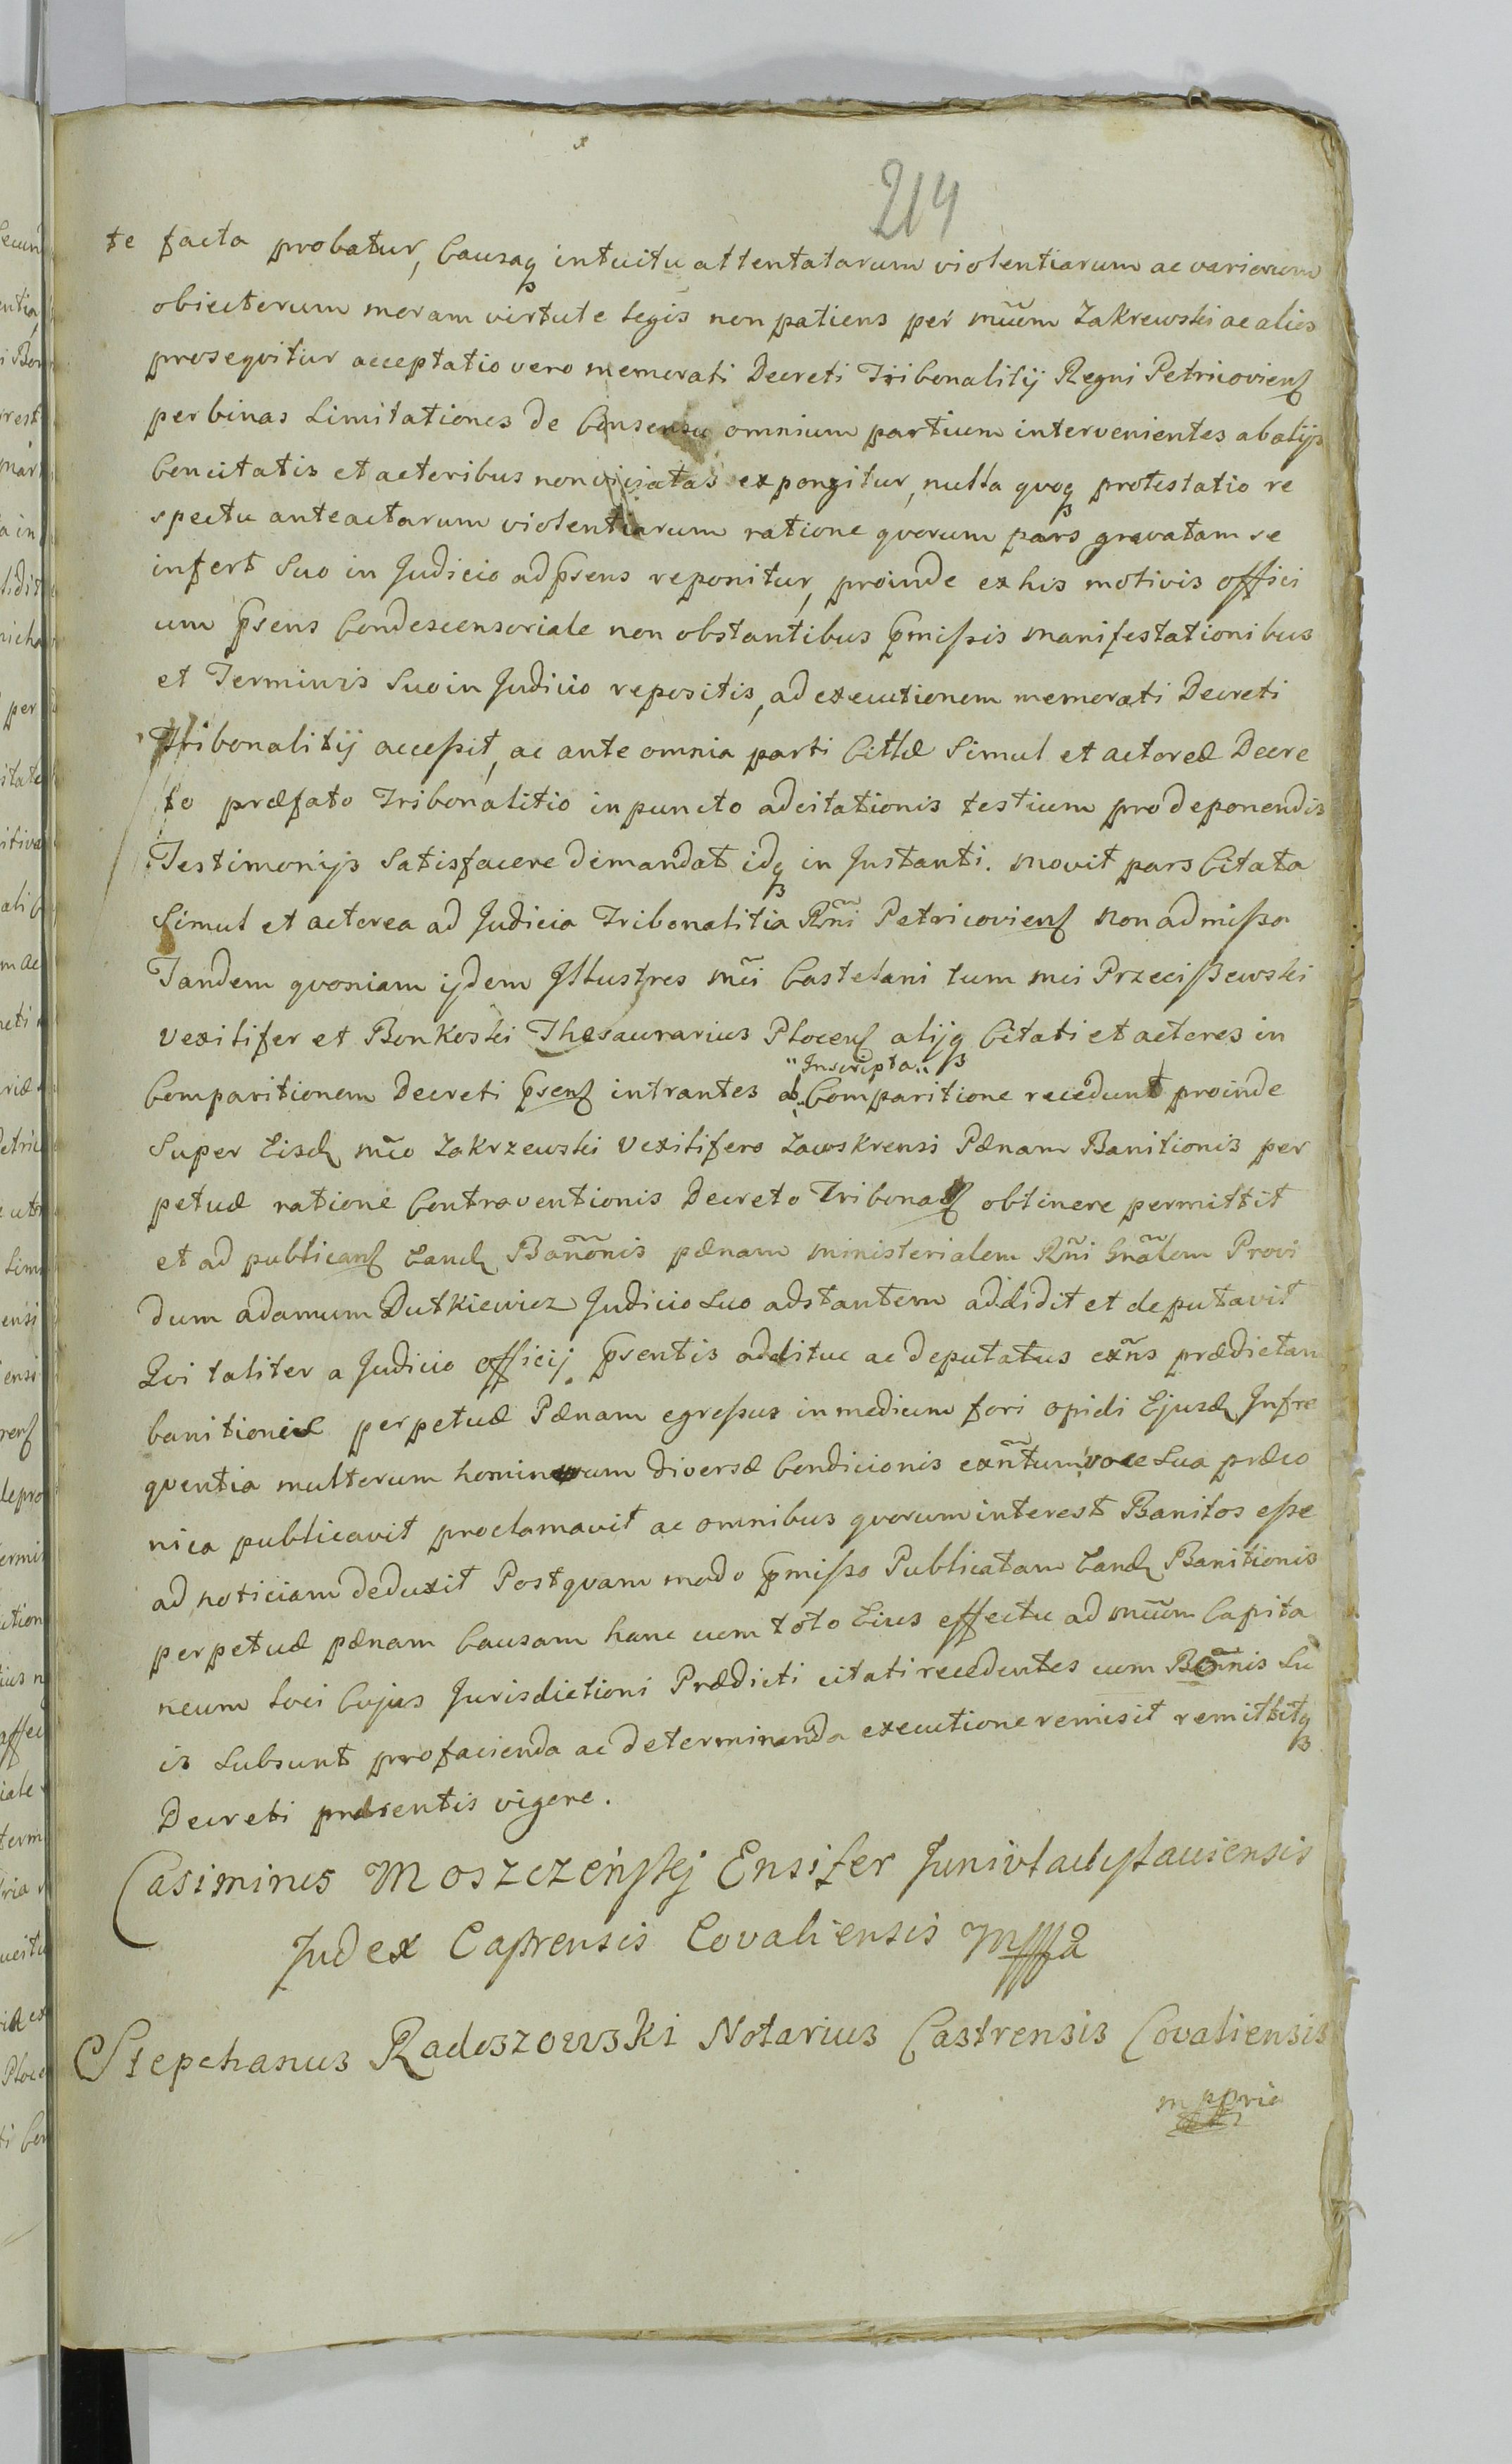 214
te facta probatur, Causaq₃ intuitu attentatarum violentiarum ac variorum
obiectorum moram virtute legis non patiens per mũm Zakrewski ac alios
proseqvitur acceptatio vero memorati Decreti Tribonalitij Regni Petricoviens
per binas Limitationes de Consensu omnium partium intervenientes ab alijs
Concitatis et actoribus non viciatas expongitur, nulla qvoq₃ protestatio re
spectu anteactarum violentiarum ratione qvorum pars gravatam se
infert Suo in Judicio ad p̃sens reponitur, proinde ex his motivis offici
um p̃sens Condescensoriale non obstantibus p̃missis manifestationibus
et Terminis Suo in Judicio repositis, ad executionem memorati Decreti
Tribonalitij accessit, ac ante omnia parti Cittæ Simul et actoreæ Decre
to præfato Tribonalitio in puncto adcitationis testium pro deponendis
Testimonijs Satisfacere demandat idq₃ in Instanti. Movit pars Citata
Simul et actorea ad Judicia Tribonalitia Rñi Petricoviens Non admissa
Tandem qvoniam ijdem Illustres mĩi Castelani tum mci Przecissewski
Vexilifer et Bonkoski Thesaurarius Plocens alijq₃ Citati et actores in
"Inscripta"
Comparitionem Decreti p̃sens intrantes ab Comparitione recedunt proinde
Super Eisd mc̃o Zakrzewski Vexilifero Zawskrensi Pænam Banitionis per
petuæ ratione Contraventionis Decreto Tribonals obtinere permittit
et ad publicans Eand Bañonis pænam ministerialem Rñi Gñalem Provi
dum adamum Dutkiewicz Judicio Suo adstantem addidit et deputavit
Qvi taliter a Judicio officij p̃sentis additus ac deputatus exñs prædictam
banitionis perpetuæ Pænam egressus in medium fori opidi Ejusd Infre
qventia multorum hominum diversæ Condicionis exñtum voce Sua præco
nica publicavit proclamavit ac omnibus qvorum interest Banitos esse
ad noticiam deduxit Postqvam modo p̃misso Publicatam Eand Banitionis
perpetuæ pænam Causam hanc cum toto Eius effectu ad mũm Capita
neum Loci Cujus Jurisdictioni Prædicti citati recedentes cum Bonnis Su
is Subsunt pro facienda ac determinanda executione remisit remittitq₃
Decreti præsentis vigore.
Casimirus Moszczeńskj Ensifer Junivladyslaviensis
Judex Castrensis Covaliensis mppa
Stepchanus Radoszowski Notarius Castrensis Covaliensis
m ppria